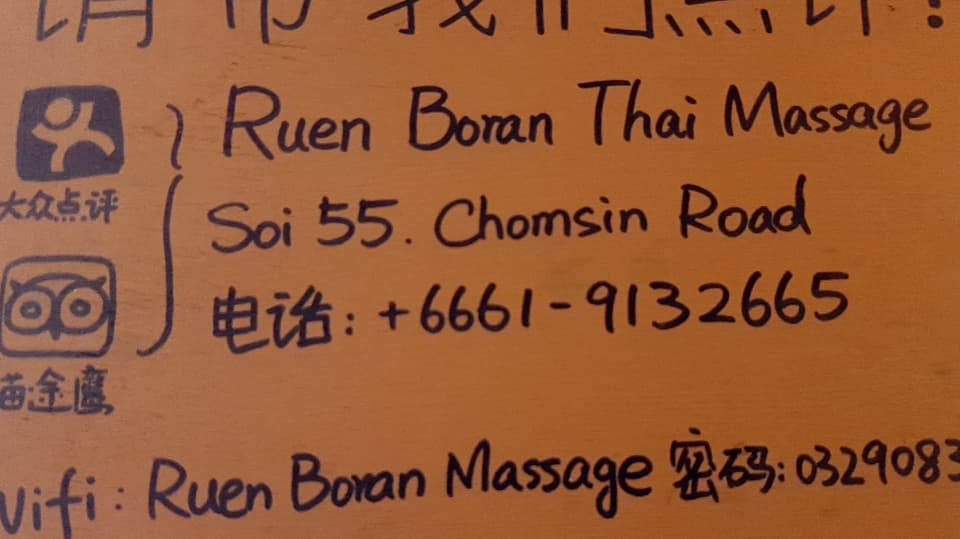 请帮我们点评:
Ruen Boran Thai Massage
大众点评
Soi 55. Chomsin Road
电话: +6661-9132665
猫途鹰
wifi: Ruen Boran Massage 密码: 0329083